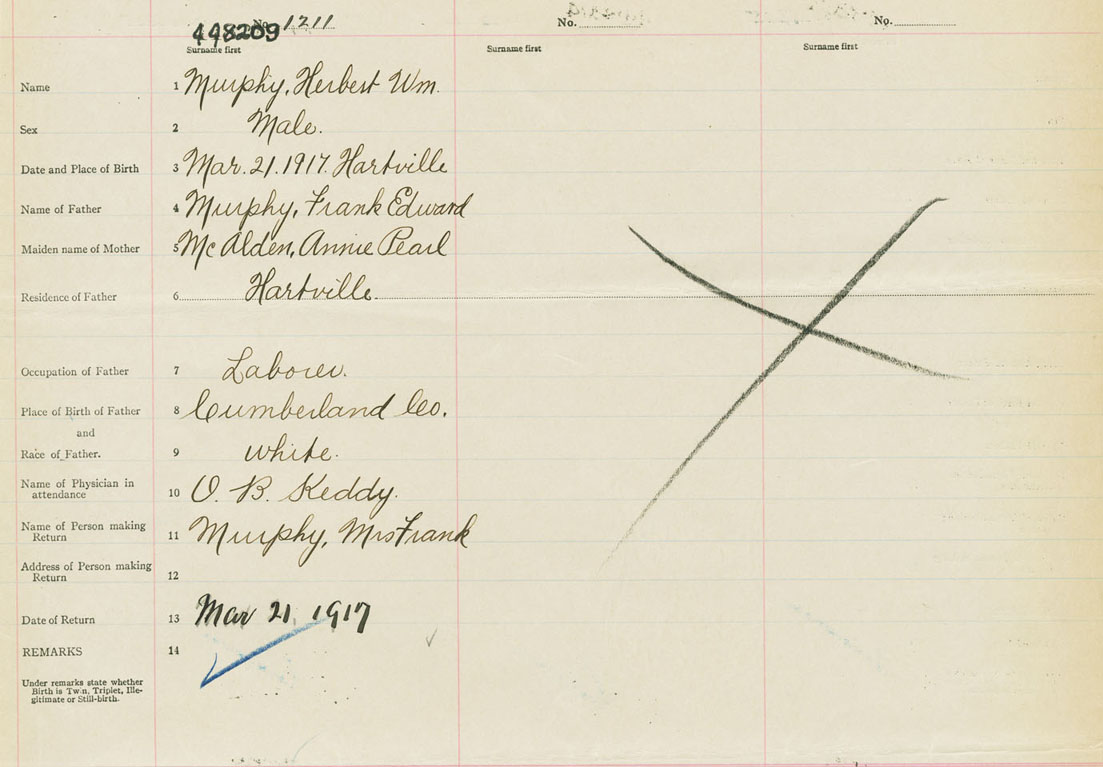 No. 1211 No. No.
448209
Surname first Surname first Surname first
Name 1 Murphy, Herbert Wm.
Sex 2 Male.
Date and Place of Birth 3 Mar. 21. 1917. Hartville
Name of Father 4 Murphy, Frank Edward
Maiden name of Mother 5 McAlden, Annie Pearl
Residence of Father 6 Hartville.
Occupation of Father 7 Laborer.
Place of Birth of Father 8 Cumberland Co.
and
Race of Father. 9 White.
Name of Physician in
attendance 10 O. B. Keddy.
Name of Person making
Return 11 Murphy, Mrs Frank
Address of Person making
Return 12
Date of Return 13 Mar 21, 1917
REMARKS 14
Under remarks state whether
Birth is Twin, Triplet, Ille-
gitimate or Still-birth.